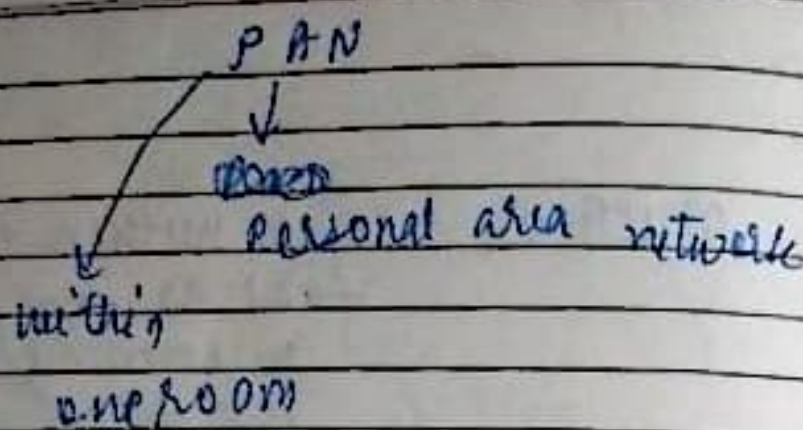 PAN
Personal area network
within
one room